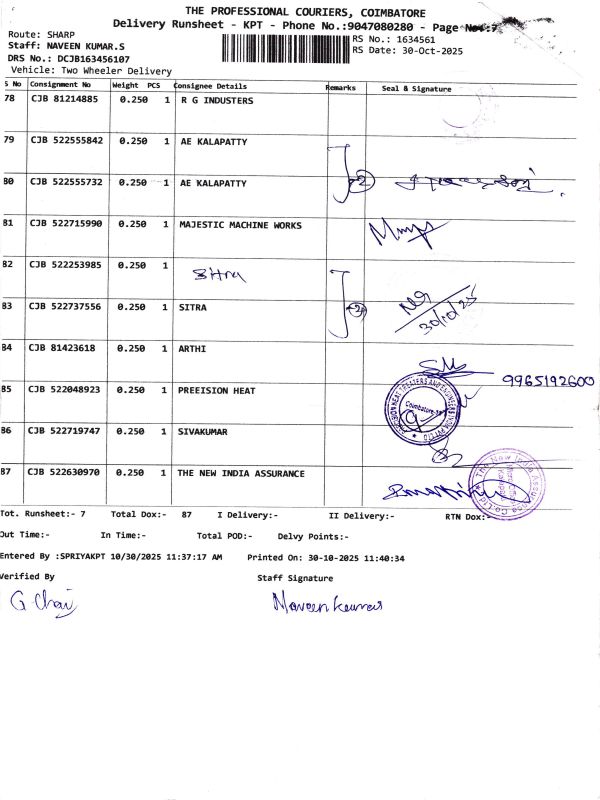 THE PROFESSIONAL COURIERS, COIMBATORE
Delivery Runsheet - KPT - Phone No.:9047080280 - Page No.:7
Route: SHARP
Staff: NAVEEN KUMAR.S
DRS No.: DCJB163456107
Vehicle: Two Wheeler Delivery
RS No.: 1634561
RS Date: 30-Oct-2025
S No Consignment No Weight PCS Consignee Details Remarks Seal & Signature
78 CJB 81214885 0.250 1 R G INDUSTERS
79 CJB 522555842 0.250 1 AE KALAPATTY
80 CJB 522555732 0.250 1 AE KALAPATTY 2
81 CJB 522715990 0.250 1 MAJESTIC MACHINE WORKS
82 CJB 522253985 0.250 1 Sitra
83 CJB 522737556 0.250 1 SITRA 2 30/10/25
84 CJB 81423618 0.250 1 ARTHI
9965192600
85 CJB 522048923 0.250 1 PREEISION HEAT Coimbatore
86 CJB 522719747 0.250 1 SIVAKUMAR
87 CJB 522630970 0.250 1 THE NEW INDIA ASSURANCE The New India Assurance Co. Ltd.
Tot. Runsheet:- 7 Total Dox:- 87 I Delivery:- II Delivery:- RTN Dox:-
Out Time:- In Time:- Total POD:- Delvy Points:-
Entered By :SPRIYAKPT 10/30/2025 11:37:17 AM Printed On: 30-10-2025 11:40:34
Verified By Staff Signature
Naveen kumar